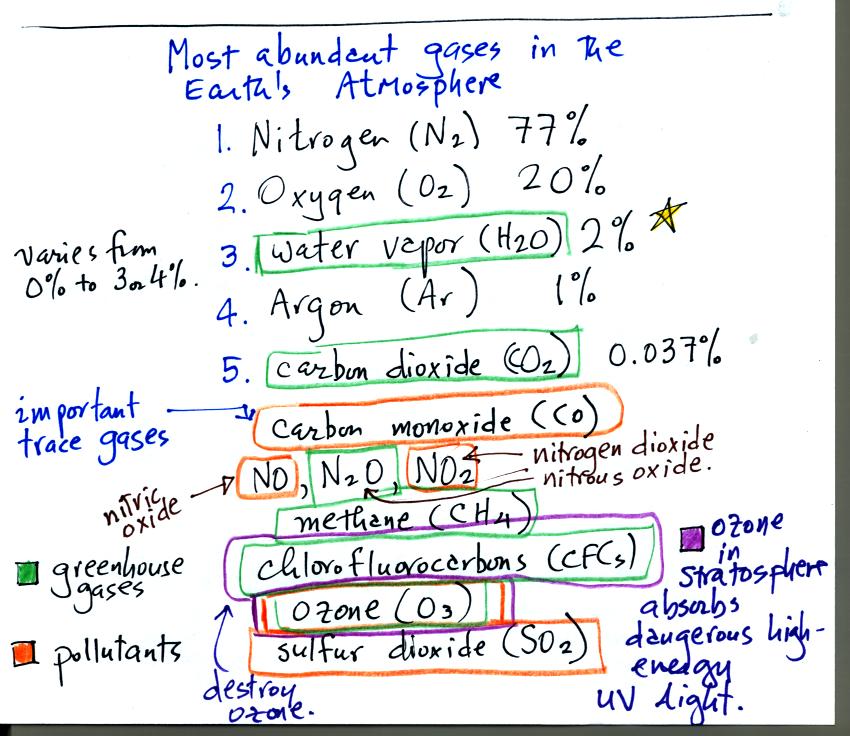 Most abundant gases in the
Earth's Atmosphere
1. Nitrogen (N2) 77%
2. Oxygen (O2) 20%
3. water vapor (H2O) 2%
varies from
0% to 3 or 4%.
4. Argon (Ar) 1%
5. carbon dioxide (CO2) 0.037%
important
trace gases
carbon monoxide (CO)
NO, N2O, NO2
nitric
oxide
nitrogen dioxide
nitrous oxide.
methane (CH4)
chlorofluorocarbons (CFCs)
ozone (O3)
sulfur dioxide (SO2)
greenhouse
gases
pollutants
destroy
ozone.
ozone
in
stratosphere
absorbs
dangerous high-
energy
UV light.